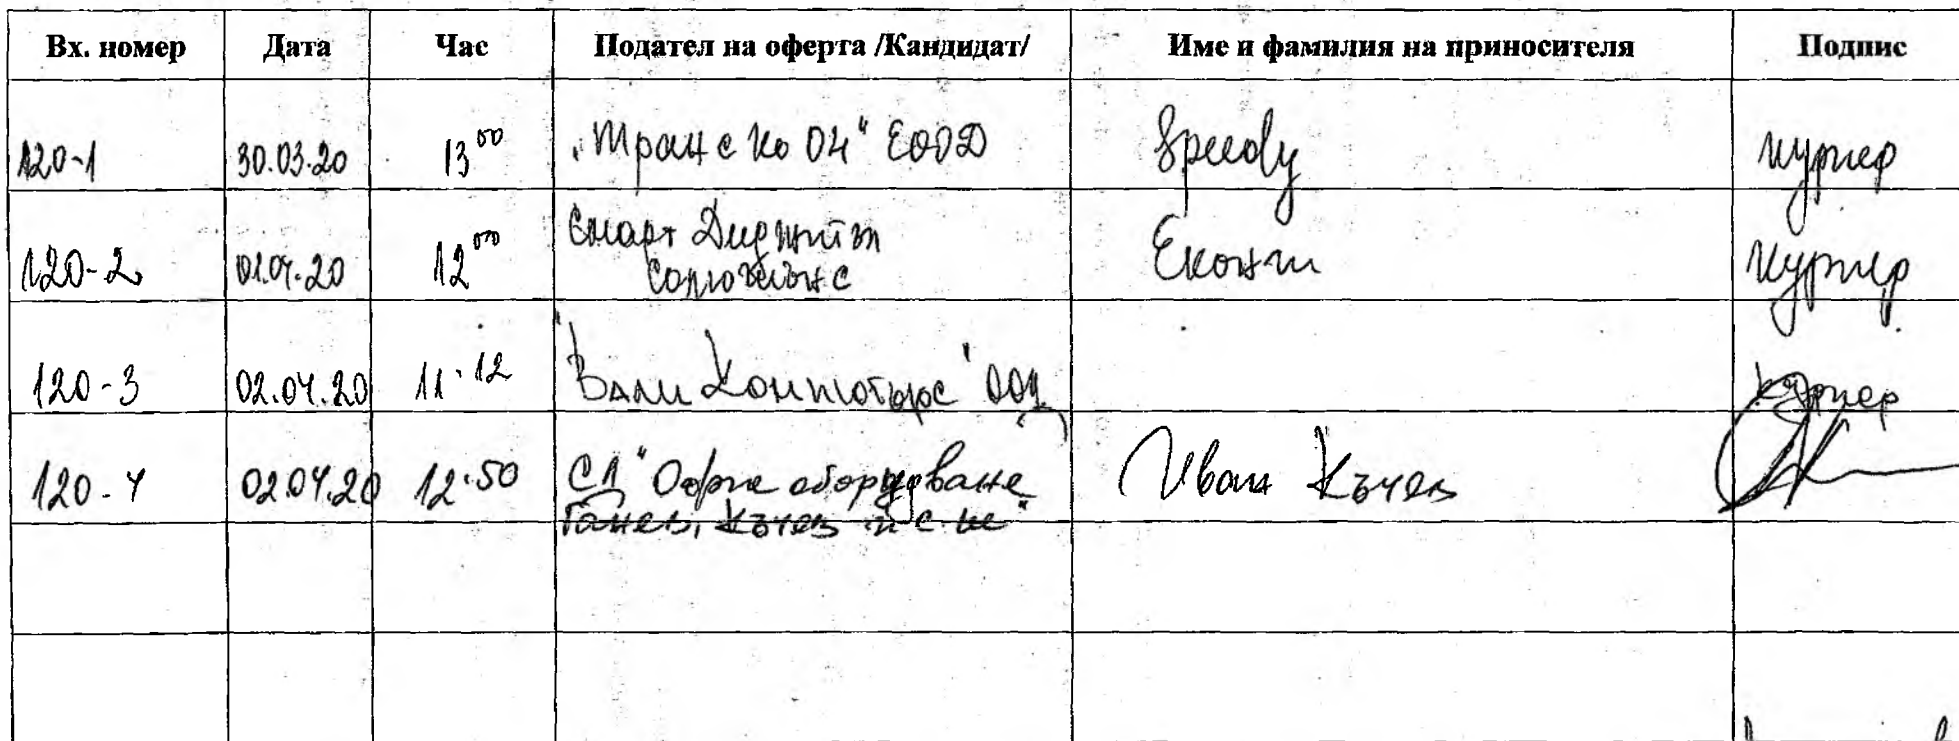 Вх. номер Дата Час Подател на оферта /Кандидат/ Име и фамилия на приносителя Подпис
120-1 30.03.20 13 00 "Транс Ко 04" ЕООД Speedy куриер
120-2 01.04.20 12 00 Смарт Диджитъл Солюшънс Еконт Куриер
120-3 02.04.20 11.12 "Вали Компютърс" ООД куриер
120-4 02.04.20 12.50 СД "Офис оборудване Иван Кънев
Ганев, Кънев и с-ие"